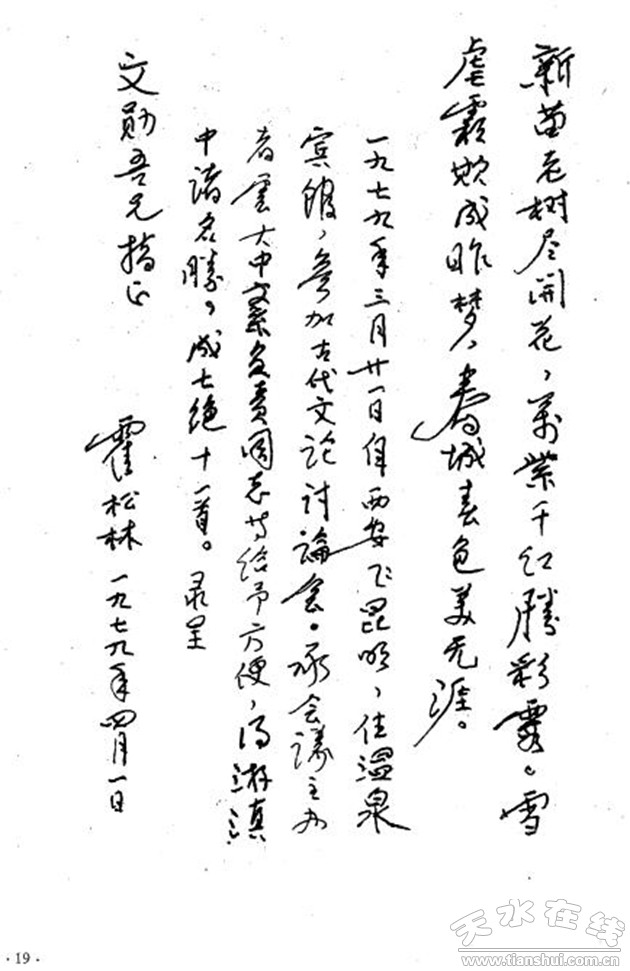 新苗老树尽開花，万紫千红勝彩霞。雪
虐霜欺成昨梦，春城春色美无涯。
一九七九年三月廿一日自西安飞昆明，住温泉
宾馆，参加古代文论讨論会。承会議主办
者雲大中文系负责同志等给予方便，得游滇
中諸名勝，成七绝十一首。录呈
文勋吾兄指正
霍松林 一九七九年四月一日
·19·
天水在线
www.tianshui.com.cn